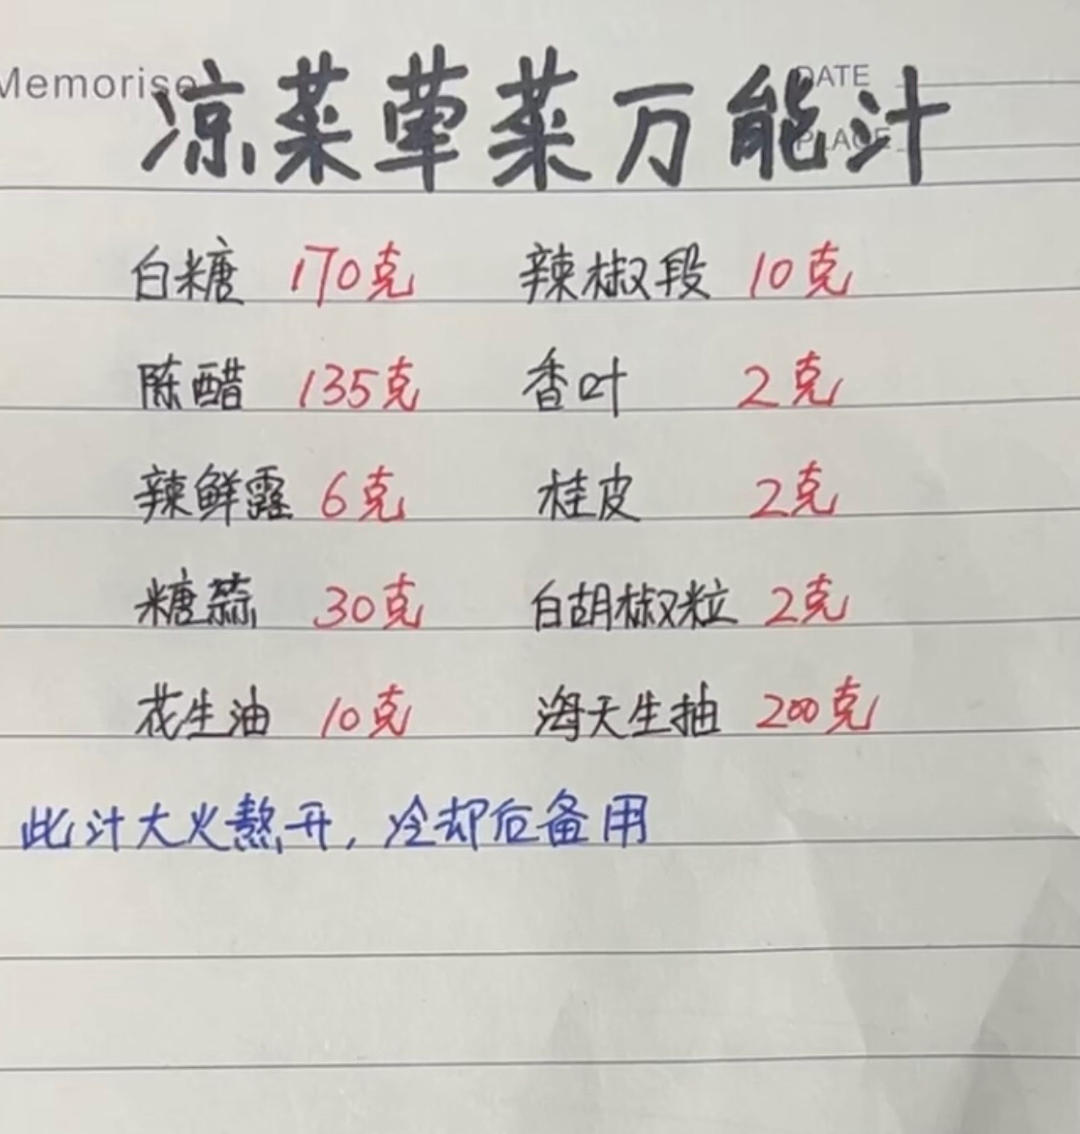 Memorise
DATE
PLACE
凉菜荤菜万能汁
白糖 170克 辣椒段 10克
陈醋 135克 香叶 2克
辣鲜露 6克 桂皮 2克
糖蒜 30克 白胡椒粒 2克
花生油 10克 海天生抽 200克
此汁大火熬开,冷却后备用